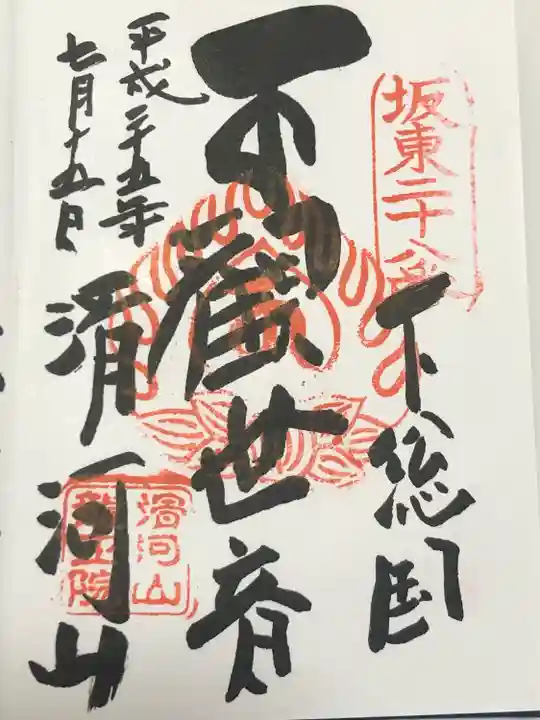 坂東二十八番
下総国
聖観世音
平成二十五年
七月十五日
滑河山
滑河山
龍正院